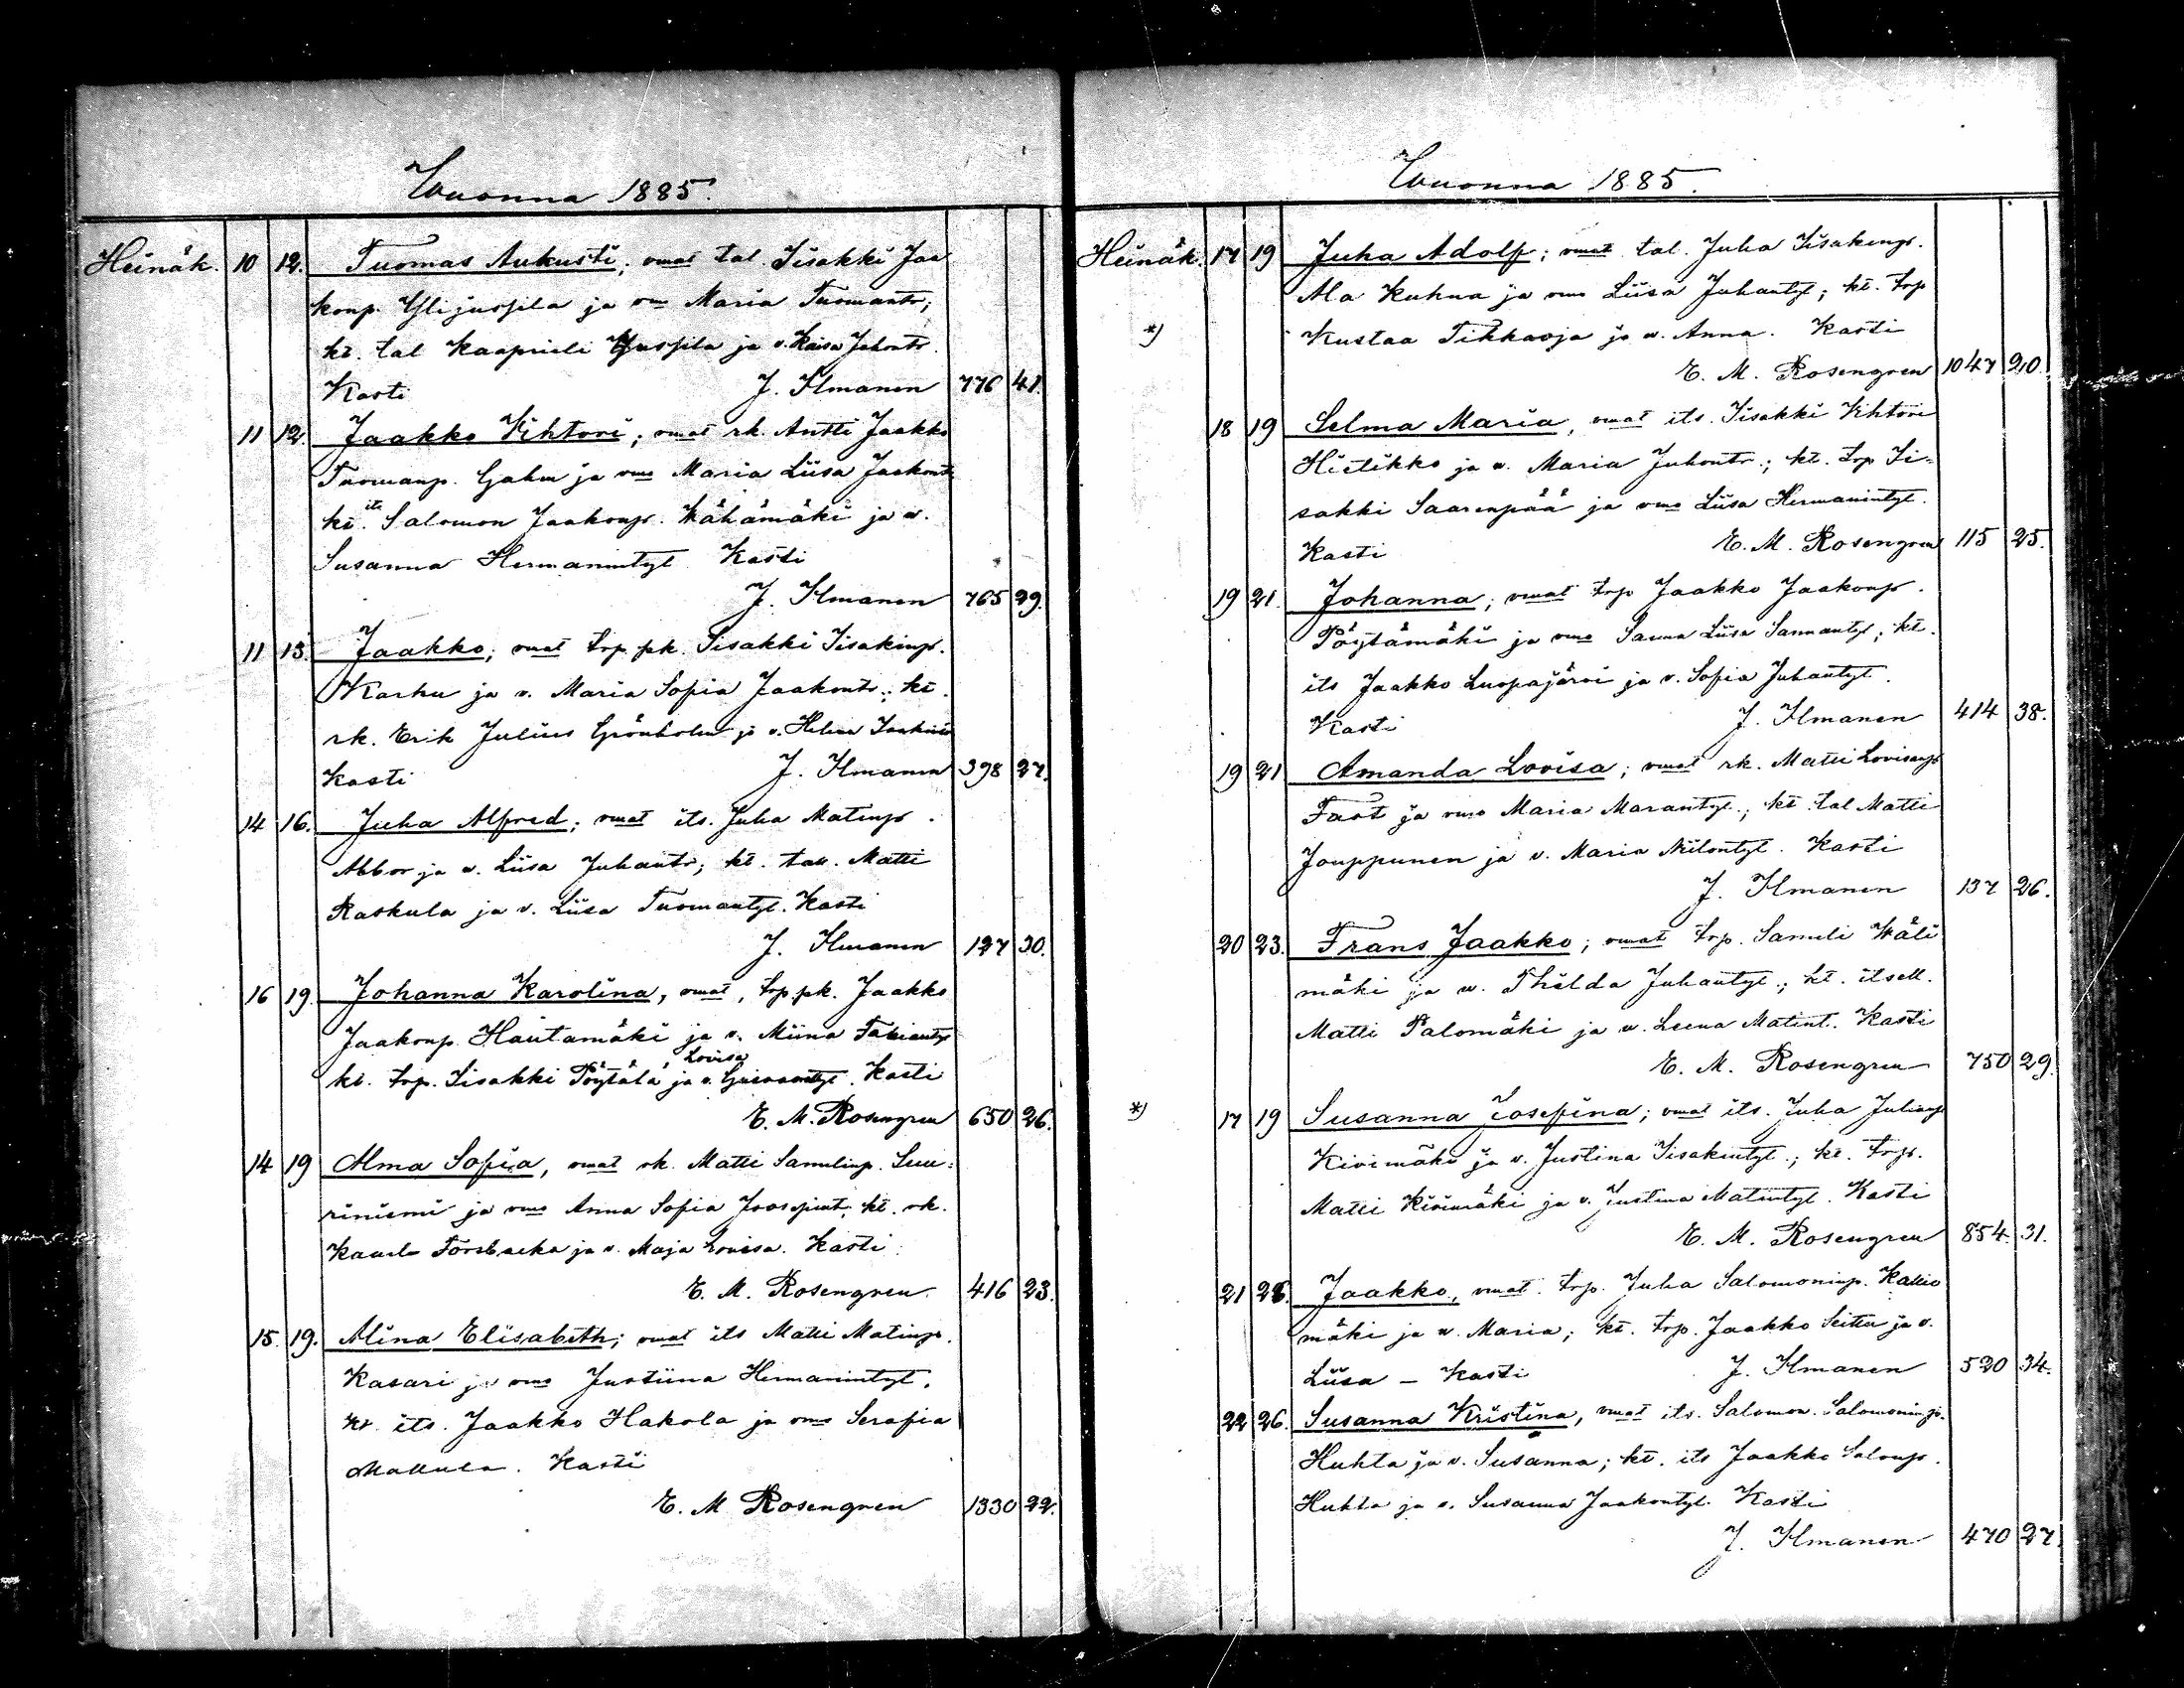 Vuonna 1885.
Heinäk. 10 12. Tuomas Aukusti; vmat tal. Iisakki Jaa
konp. Ylijuspila ja vmo Maria Tuomantr;
kt. tal Kaaprieli Yjuspila ja v. Kaisa Juhontr.
Kasti J. Ilmanen 776 41.
11 12. Jaakko Vihtori; vmat rk. Antti Jaakko
Tuomanp. Galm ja vmo Maria Liisa Jaakont
kt. its Salomon Jaakonp. Wähämäki ja v.
Susanna Hermanintyt Kasti
J. Ilmanen 765 29.
11 13. Jaakko; vmat trp. pk. Iisakki Iisakinp.
Karhu ja v. Maria Sofia Jaakontr.; kt.
rk. Erik Julius Grönholm ja v. Helena
Kasti J. Ilmanen 398 27.
14 16. Juha Alfred; vmat its. Juha Matinp.
Abbor ja v. Liisa Juhantr; kt. Matti
Raskula ja v. Liisa Tuomantyt. Kasti
J. Ilmanen 127 30.
16 19. Johanna Karolina, vmat, trp. pk. Jaakko
Jaakonp. Hautamäki ja v. Miina
kt. trp. Iisakki Pöytälä ja v. Lovisa Kasti
E. M. Rosengren 650 26.
14 19 Alma Sofia, vmat rk. Matti Samulinp. Suu-
riniemi ja vmo Anna Sofia Joosepint; kt. rk.
Kaarlo Forsbacka ja v. Maja Lovisa. Kasti
E. M. Rosengren 416 23.
15. 19. Alina Elisabeth; vmat its Matti Matinp.
Kasari ja vmo Justiina Hermanintyt,
kt. its. Jaakko Hakola ja vmo Serafia
Mattula. Kasti
E. M Rosengren 1330 22.
Vuonna 1885.
Heinäk. 17 19 Juha Adolf; vmat tal. Juha Iisakinp.
Ala Kuhna ja vmo Liisa Juhantyt; kt. trp
*) Kustaa Tikkaoja ja v. Anna. Kasti
E. M. Rosengren 1047 20.
18 19 Selma Maria, vmat its. Iisakki Vihtori
Hietikko ja v. Maria Juhontr.; kt. trp Ii-
sakki Saarenpää ja vmo Liisa Hermanintyt.
Kasti E. M. Rosengren 115 25.
19 21. Johanna; vmat trp Jaakko Jaakonp.
Pöytämäki ja vmo Sanna Liisa Sannantyt; kt.
its Jaakko Luopajärvi ja v. Sofia Juhantyt.
Kasti J. Ilmanen 414 38.
19 21 Amanda Lovisa; vmat rk. Matti Lovisanp
Fast ja vmo Maria Marantyt.; kt. tal Matti
Jouppunen ja v. Maria Niilontyt. Kasti
J. Ilmanen 137 26.
20 23. Frans Jaakko; vmat trp. Sameli Wäli
mäki ja v. Thilda Juhantyt.; kt. itsell.
Matti Palomäki ja v. Leena Matint. Kasti
E. M. Rosengren 750 29.
*) 17 19 Susanna Josefina; vmat its. Juha Juhanp
Kivimäki ja v. Justina Iisakintyt.; kt. trp.
Matti Kivimäki ja v. Justina Matintyt. Kasti
E. M. Rosengren 854. 31.
21 26. Jaakko, vmat. trp. Juha Salomoninp. Kallio
mäki ja v. Maria; kt. trp. Jaakko Seitu ja v.
Liisa – Kasti J. Ilmanen 520 34.
22 26. Susanna Kristina, vmat its. Salomon Salomoninp.
Huhta ja v. Susanna; kt. its Jaakko Salonp.
Huhta ja v. Susanna Jaakontyt. Kasti
J. Ilmanen 470 27